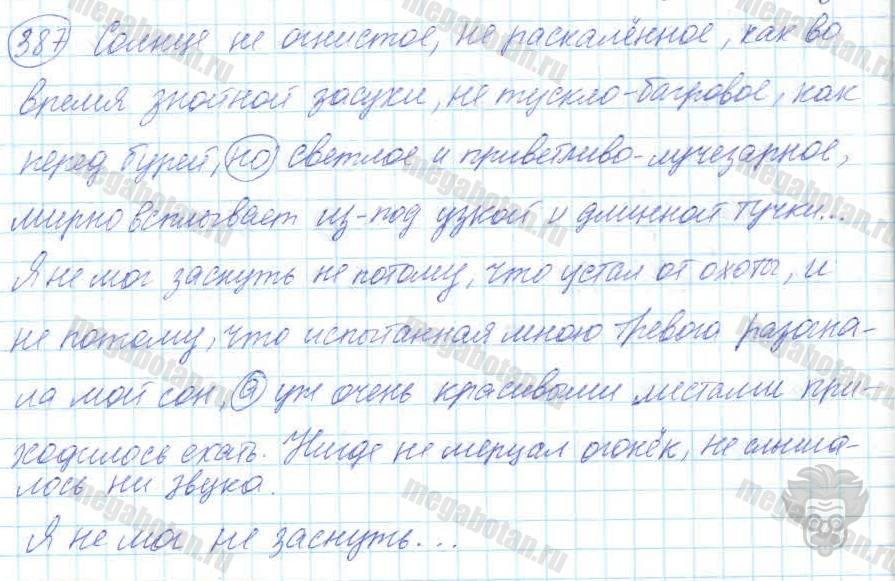 387 Солнце не огнистое, не раскалённое, как во
время знойной засухи, не тускло-багровое, как
перед бурей, но светлое и приветливо-лучезарное,
мирно всплывает из-под узкой и длинной тучки...
Я не мог заснуть не потому, что устал от охоты, и
не потому, что испытанная мною тревога разогна-
ла мой сон, а уж очень красивыми местами при-
ходилось ехать. Нигде не мерцал огонёк, не слыша-
лось ни звука.
Я не мог не заснуть...
megabotan.ru